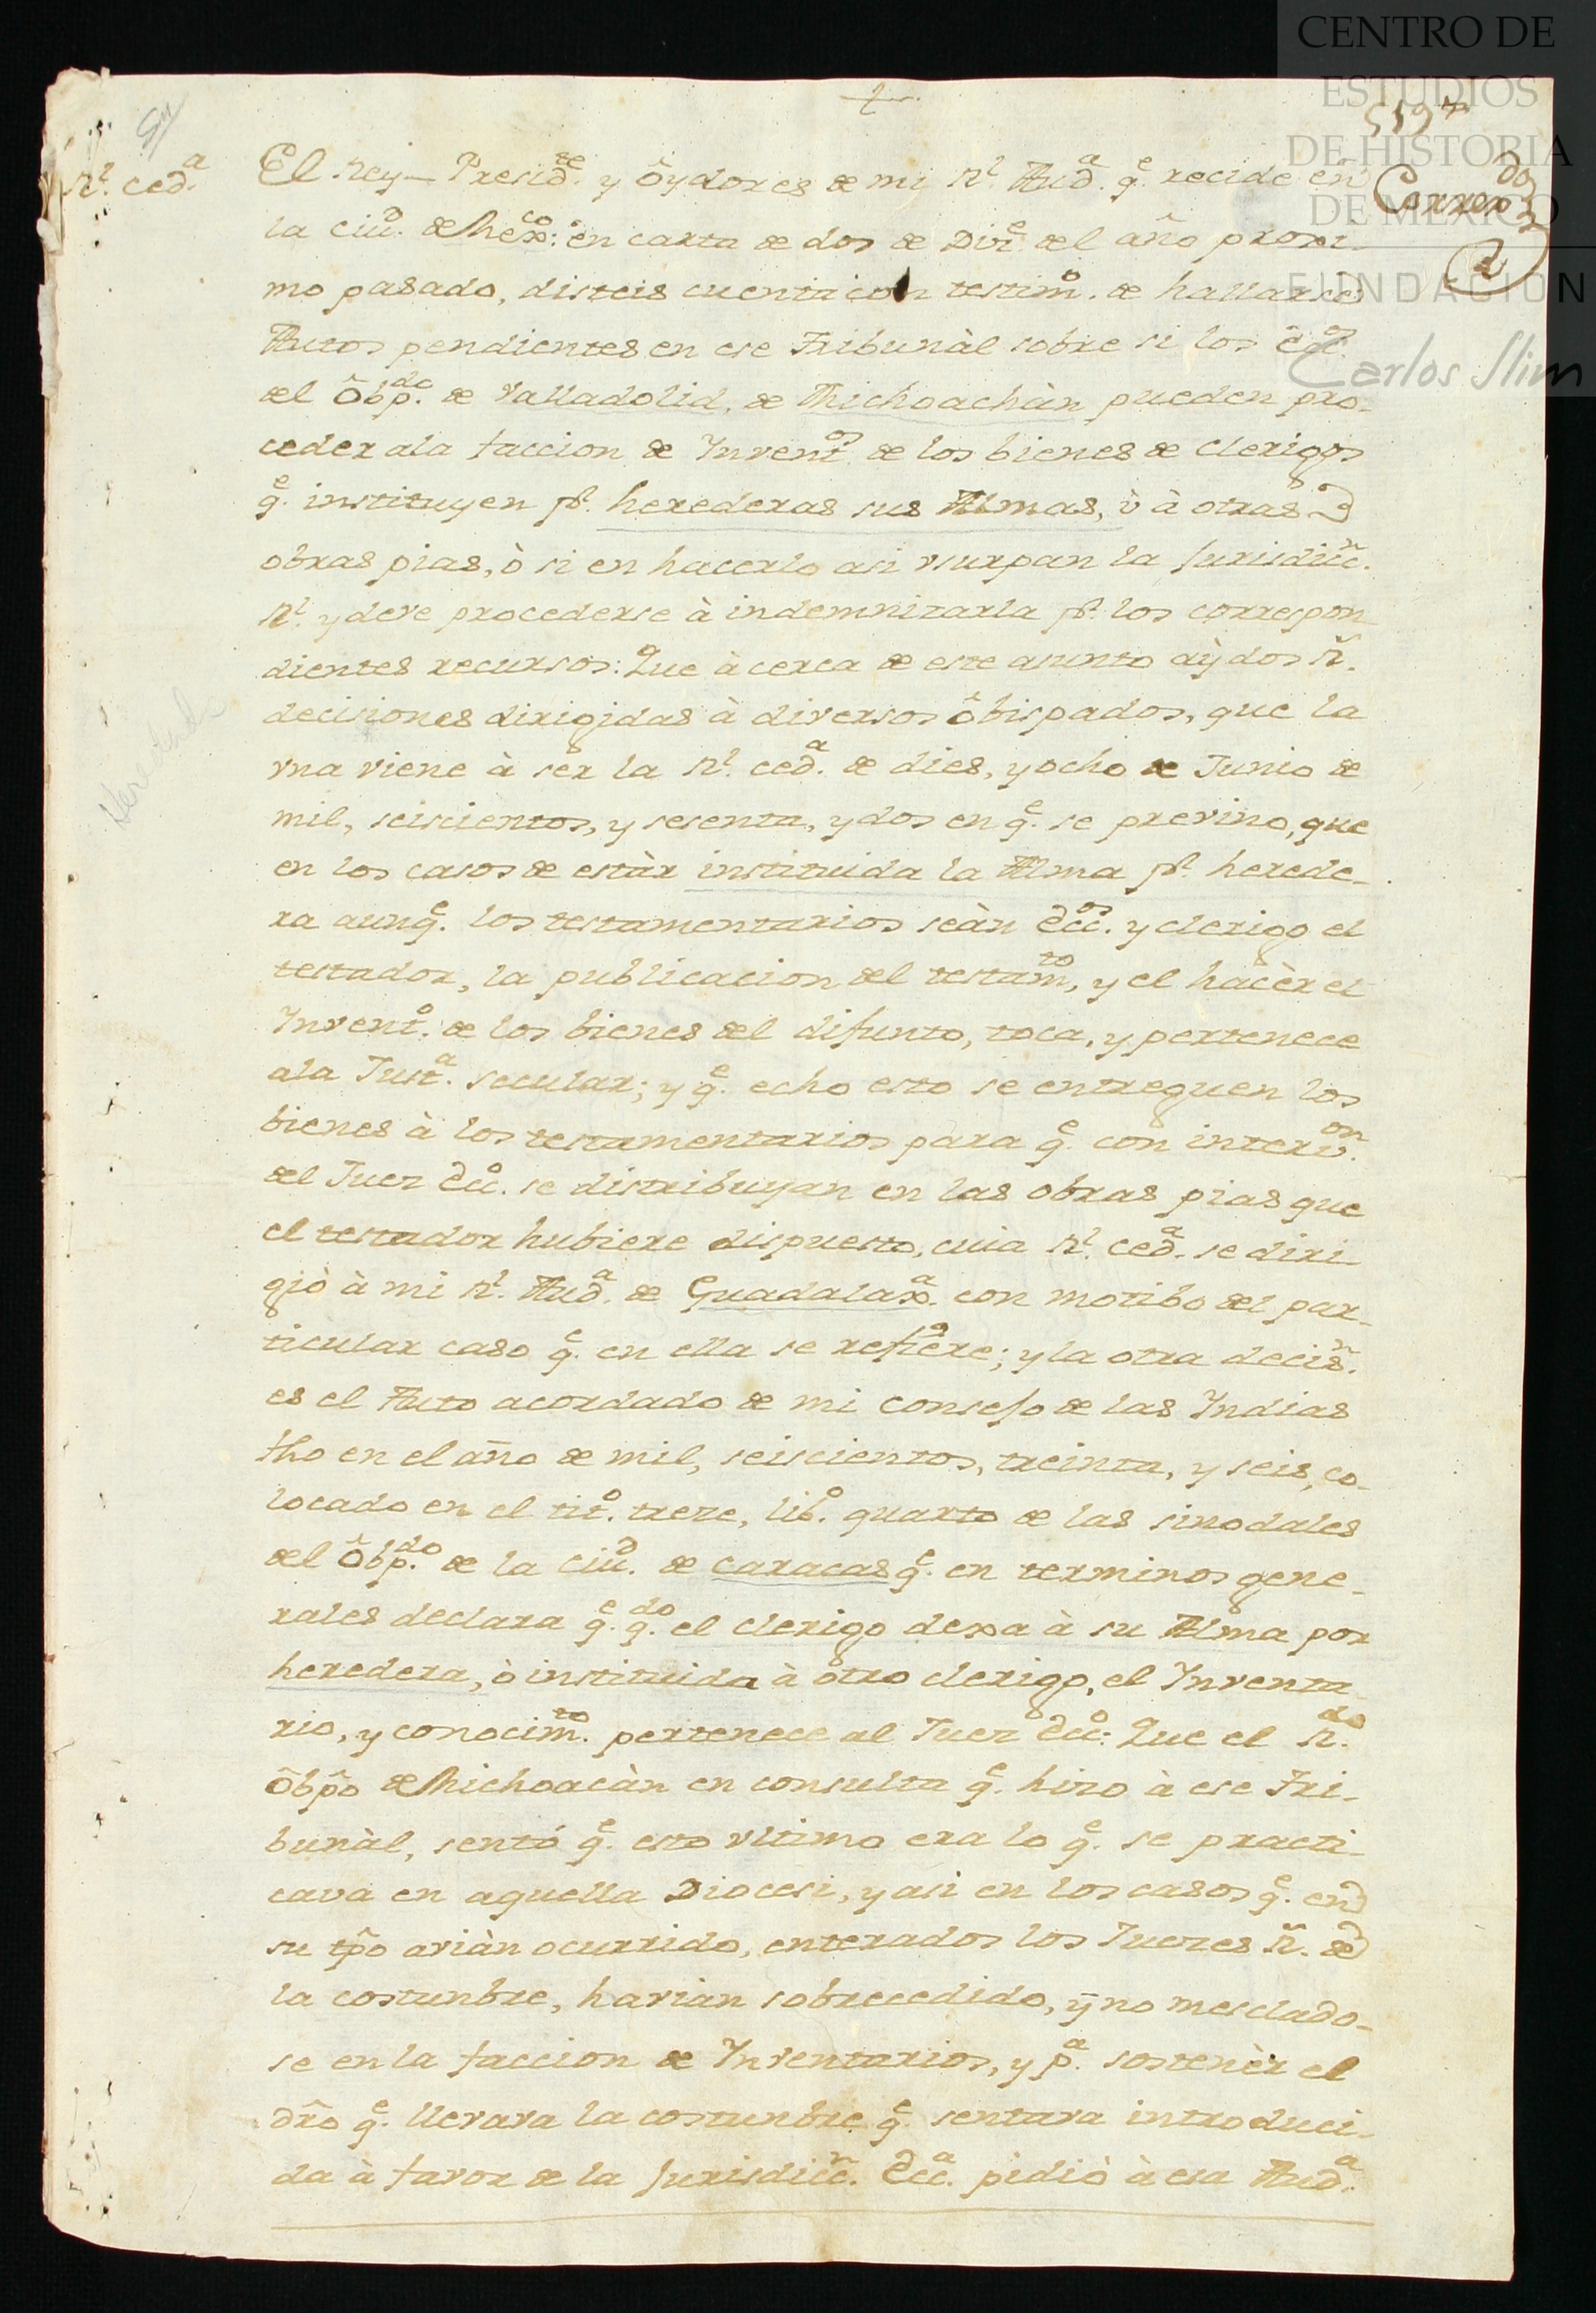 CENTRO DE
ESTUDIOS
DE HISTORIA
DE MEXICO
FUNDACION
Carlos Slim
Correxdo
2
Rl. cedª
El Rey Presidte. y Oydores de mi Rl. Audª. qe. recide en
la ciud. de Mexco: en carta de dos de Dire. del año proxi-
mo pasado, disteis cuenta con testimo. de hallarse
Autos pendientes en ese Tribunàl sobre si los eccos.
del Obpdo. de Valladolid, de Michoachàn pueden pro-
ceder ala faccion de Inventos. de los bienes de clerigos
qe. instituyen pr. herederas sus Almas, ù à otras
obras pias, ò si en hacerlo asi vsurpan la Jurisdiccn.
Rl. y deve procederse à indemnizarla pr. los correspon
dientes recursos: Que àcerca de este asunto aÿ dos Rs.
decisiones dirigidas à diversos Obispados, que la
vna viene à ser la Rl. cedª. de dies, y ocho de Junio de
mil, seiscientos, y sesenta, y dos en qe. se previno, que
en los casos de estàr instituida la Alma pr. herede-
ra aunqe. los testamentarios seàn eccos. y clerigo el
testador, la publicacion del testamto, y el hacèr el
Invento. de los bienes del difunto, toca, y pertenece
ala Justª. secular; y qe. echo esto se entreguen los
bienes à los testamentarios para qe. con intervon.
del Juez ecco. se distribuyan en las obras pias que
el testador hubiere dispuesto, cuia Rl. cedª. se diri-
giò à mi Rl. Audª. de Guadalaxª. con motibo del par-
ticular caso qe. en ella se refiere; y la otra decisn.
es el Auto acordado de mi consejo de las Indias
fho en el año de mil, seiscientos, treinta, y seis, co-
locado en el tito. treze, libo. quarto de las sinodales
del Obpdo. de la Ciud. de caracas qe. en terminos gene-
rales declara qe. qdo. el clerigo dexa à su Alma por
heredera, ò instituida à otro clerigo, el Inventa
rio, y conocimto. pertenece al Juez ecco: Que el Rdo.
Obpo de Michoacàn en consulta qe. hizo à ese Tri-
bunàl, sentó qe. esto vltimo era lo qe. se practi-
cava en aquella Diocesi, y asi en los casos qe. en
su tpo aviàn ocurrido, enterados los Juezes Rs. de
la costunbre, havian sobrecedido, y no mesclado-
se en la faccion de Inventarios, y pª. sostenèr el
dro qe. llevava la costunbre qe. sentava introduci-
da à favor de la Jurisdiccn. eccª. pidiò à esa Audª.